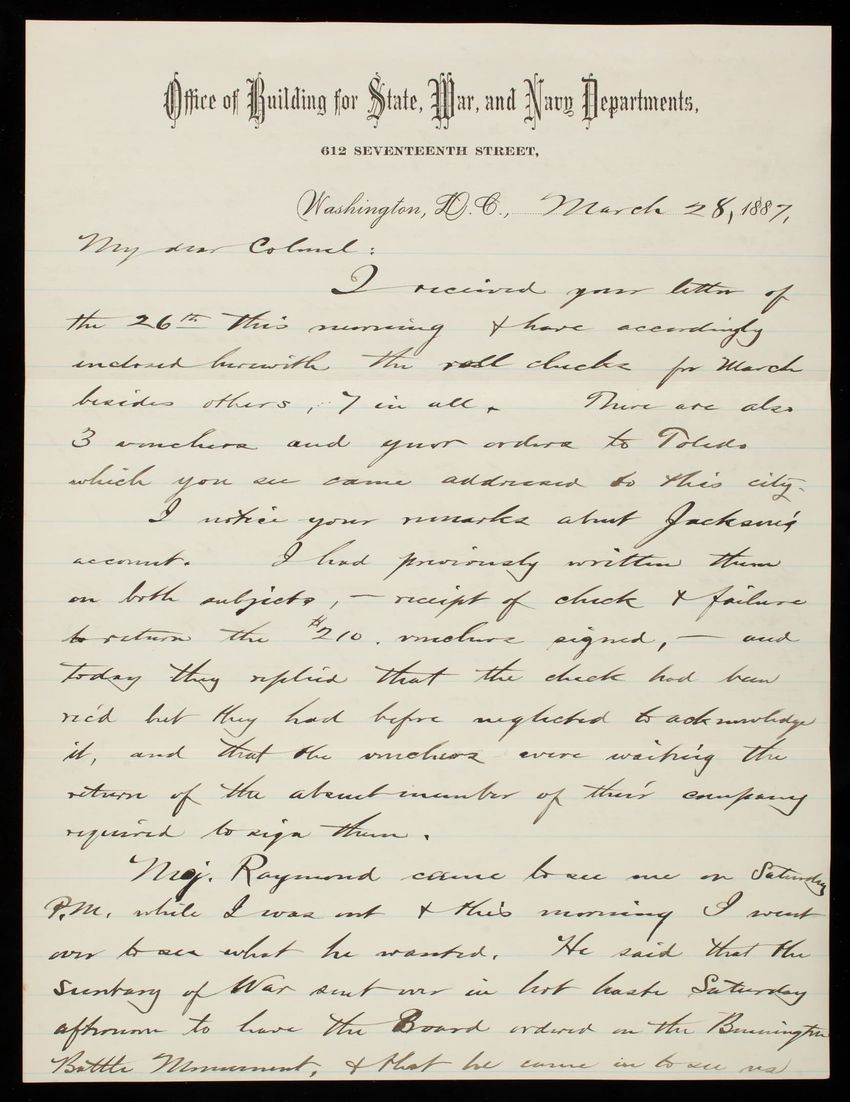 Office of Building for State, War, and Navy Departments,
612 SEVENTEENTH STREET,
Washington, D.C., March 28, 1887,
My dear Colonel:
I received your letter of
the 26th this morning & have accordingly
enclosed herewith the roll checks for March
besides others, 7 in all. There are also
3 vouchers and your orders to Toledo
which you see came addressed to this city.
I notice your remarks about Jackson's
account. I had previously written them
on both subjects, — receipt of check & failure
to return the $210. vouchers signed, — and
today they replied that the check had been
rec'd but they had before neglected to acknowledge
it, and that the vouchers were waiting the
return of the absent member of their company
required to sign them.
Maj. Raymond came to see me on Saturday
P.M. while I was out & this morning I went
over to see what he wanted. He said that the
Secretary of War sent over in hot haste Saturday
afternoon to have the Board ordered on the Bennington
Battle Monument, & that he came in to see us